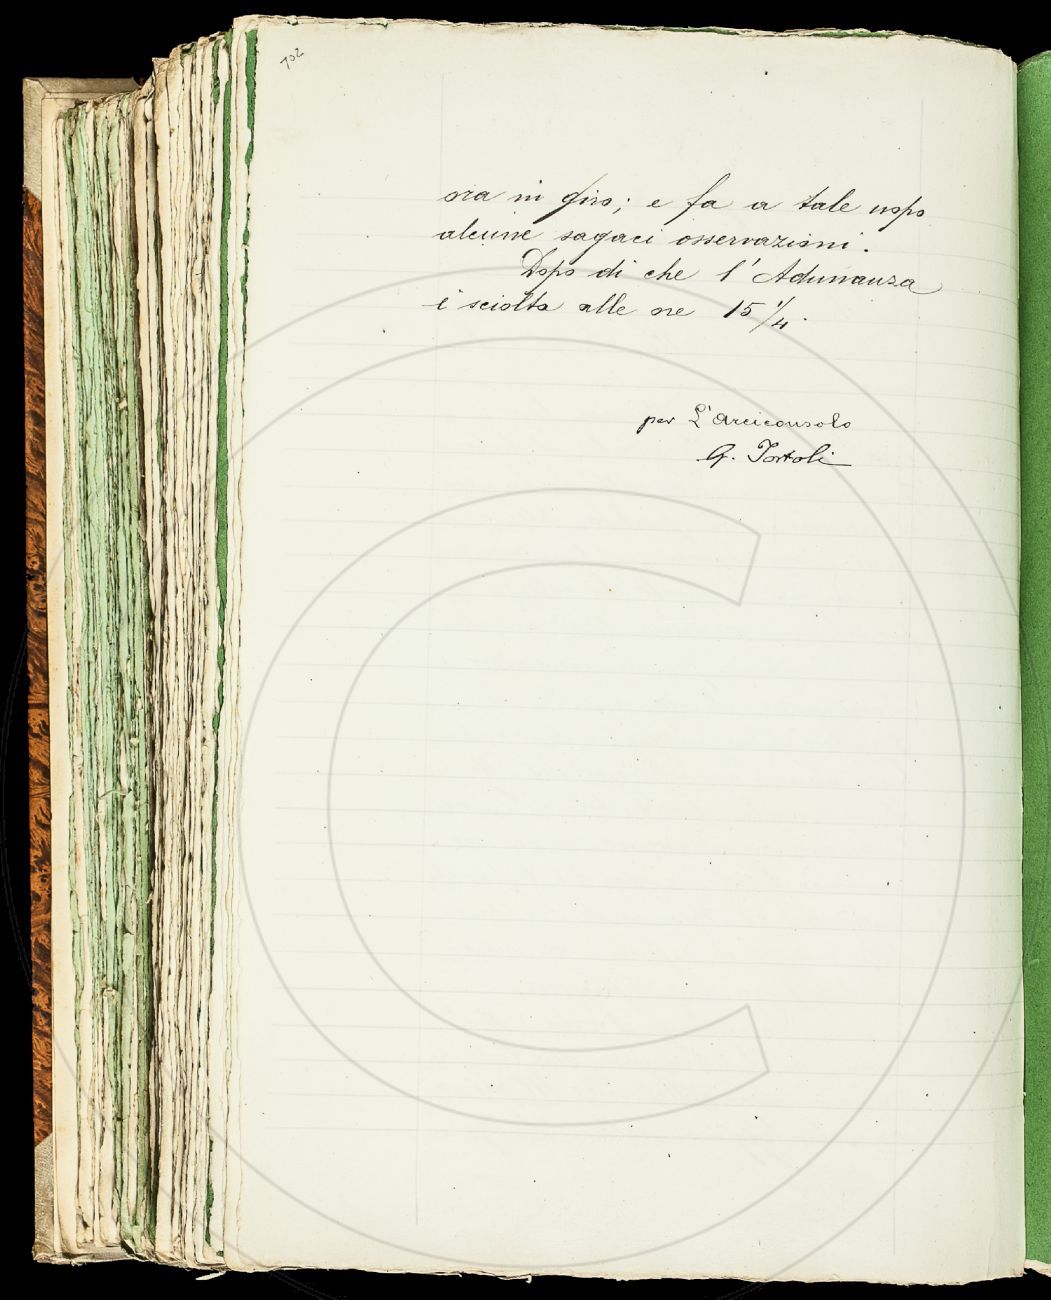 702
ora in giro; e fa a tale uopo
alcune sagaci osservazioni.
Dopo di che l'Adunanza
è sciolta alle ore 15 1/4.
per L'Arciconsolo
G. Tortoli